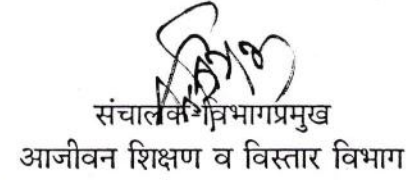 संचालक-विभागप्रमुख
आजीवन शिक्षण व विस्तार विभाग